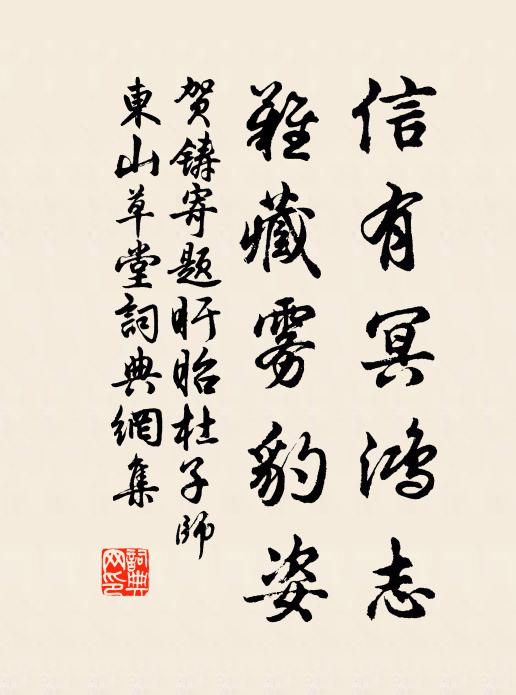 信有冥鴻志
難藏雾豹姿
贺鑄寄题盱眙杜子師
東山草堂詞典網集
詞典网印